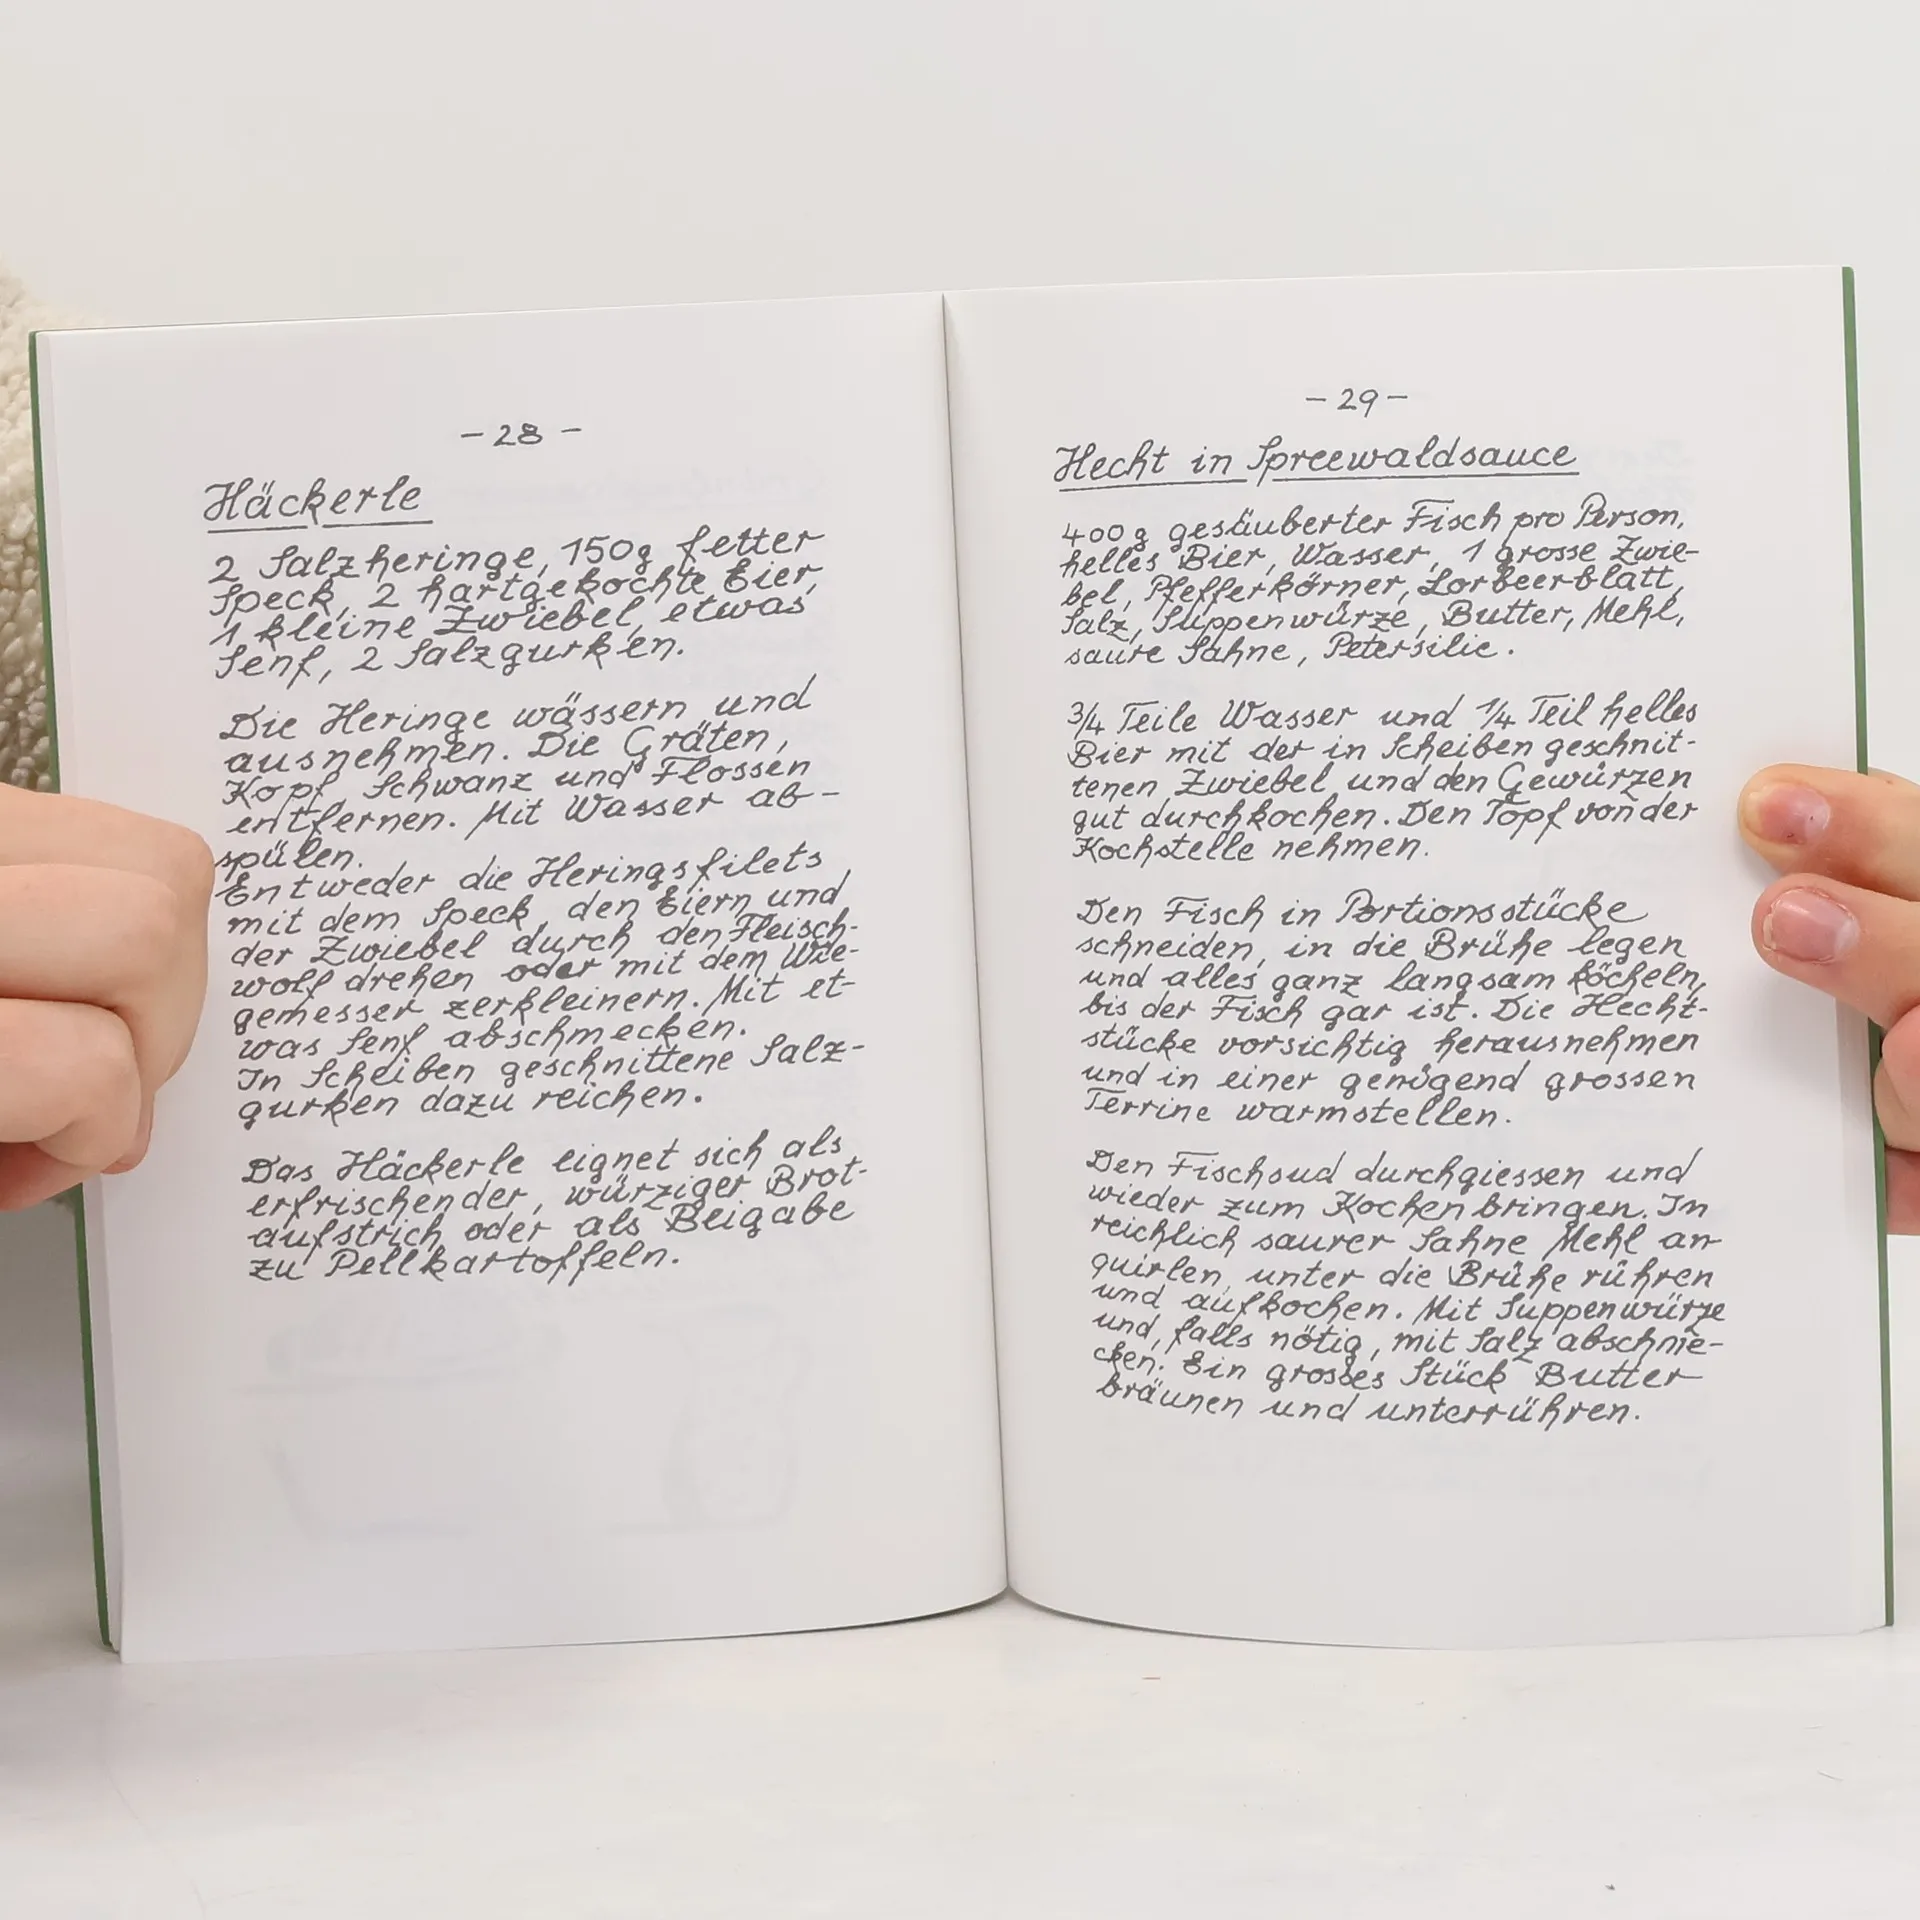 - 28 -
Häckerle
2 Salzheringe, 150g fetter
Speck, 2 hartgekochte Eier,
1 kleine Zwiebel, etwas
Senf, 2 Salzgurken.
Die Heringe wässern und
ausnehmen. Die Gräten,
Kopf, Schwanz und Flossen
entfernen. Mit Wasser ab-
spülen.
Entweder die Heringsfilets
mit dem Speck, den Eiern und
der Zwiebel durch den Fleisch-
wolf drehen oder mit dem Wie-
gemesser zerkleinern. Mit et-
was Senf abschmecken.
In Scheiben geschnittene Salz-
gurken dazu reichen.
Das Häckerle eignet sich als
erfrischender, würziger Brot-
aufstrich oder als Beigabe
zu Pellkartoffeln.
- 29 -
Hecht in Spreewaldsauce
400 g gesäuberter Fisch pro Person,
helles Bier, Wasser, 1 grosse Zwie-
bel, Pfefferkörner, Lorbeerblatt,
Salz, Suppenwürze, Butter, Mehl,
saure Sahne, Petersilie.
3/4 Teile Wasser und 1/4 Teil helles
Bier mit der in Scheiben geschnit-
tenen Zwiebel und den Gewürzen
gut durchkochen. Den Topf von der
Kochstelle nehmen.
Den Fisch in Portionsstücke
schneiden, in die Brühe legen
und alles ganz langsam köcheln,
bis der Fisch gar ist. Die Hecht-
stücke vorsichtig herausnehmen
und in einer genügend grossen
Terrine warmstellen.
Den Fischsud durchgiessen und
wieder zum Kochen bringen. In
reichlich saurer Sahne Mehl an-
quirlen, unter die Brühe rühren
und aufkochen. Mit Suppenwürze
und, falls nötig, mit Salz abschme-
cken. Ein grosses Stück Butter
bräunen und unterrühren.